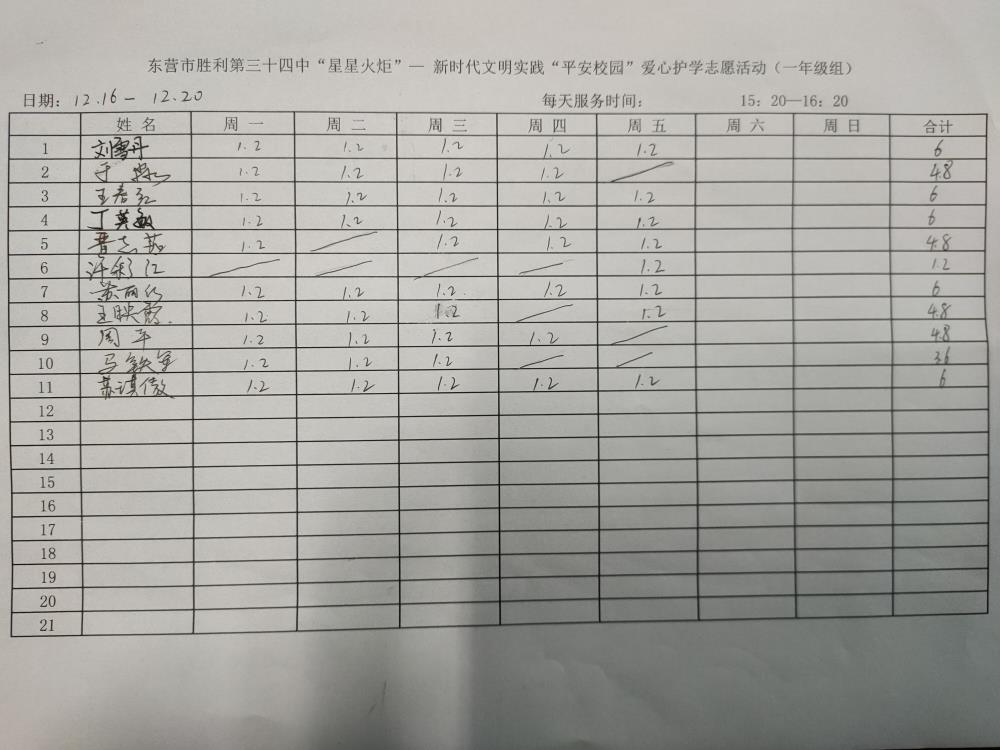 东营市胜利第三十四中“星星火炬”— 新时代文明实践“平安校园”爱心护学志愿活动（一年级组）
日期： 12.16 - 12.20 每天服务时间： 15：20—16：20
姓名 周一 周二 周三 周四 周五 周六 周日 合计
1 刘雪丹 1.2 1.2 1.2 1.2 1.2 6
2 于 1.2 1.2 1.2 1.2 / 4.8
3 王春红 1.2 1.2 1.2 1.2 1.2 6
4 丁英敏 1.2 1.2 1.2 1.2 1.2 6
5 晋志茹 1.2 / 1.2 1.2 1.2 4.8
6 许彩江 / / / / 1.2 1.2
7 苏丽红 1.2 1.2 1.2 1.2 1.2 6
8 王映霞 1.2 1.2 1.2 / 1.2 4.8
9 周平 1.2 1.2 1.2 1.2 / 4.8
10 马铁军 1.2 1.2 1.2 / / 3.6
11 苏淇傲 1.2 1.2 1.2 1.2 1.2 6
12
13
14
15
16
17
18
19
20
21